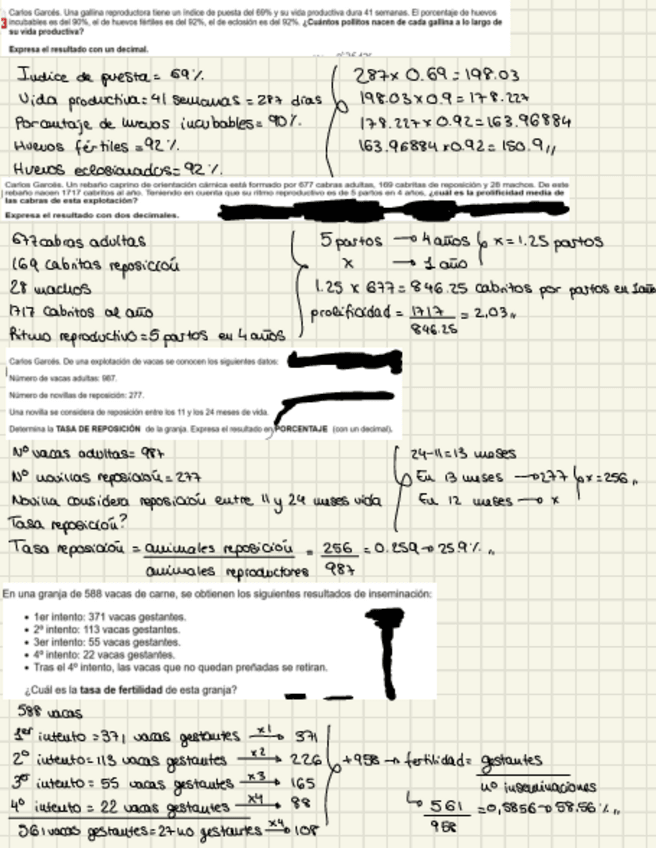 Carlos Garcés. Una gallina reproductora tiene un índice de puesta del 69% y su vida productiva dura 41 semanas. El porcentaje de huevos
3 incubables es del 90%, el de huevos fértiles es del 92%, el de eclosión es del 92%. ¿Cuántos pollitos nacen de cada gallina a lo largo de
su vida productiva?
Expresa el resultado con un decimal.
Índice de puesta = 69%
Vida productiva = 41 semanas = 287 días
Porcentaje de huevos incubables = 90%.
Huevos fértiles = 92%
Huevos eclosionados = 92%.
287 x 0.69 = 198.03
198.03 x 0.9 = 178.227
178.227 x 0.92 = 163.96884
163.96884 x 0.92 = 150.9
Carlos Garcés. Un rebaño caprino de orientación cárnica está formado por 677 cabras adultas, 169 cabritas de reposición y 28 machos. De este
rebaño nacen 1717 cabritos al año. Teniendo en cuenta que su ritmo reproductivo es de 5 partos en 4 años, ¿cuál es la prolificidad media de
las cabras de esta explotación?
Expresa el resultado con dos decimales.
677 cabras adultas
169 cabritas reposición
28 machos
1717 cabritos al año
Ritmo reproductivo = 5 partos en 4 años
5 partos → 4 años x = 1.25 partos
x → 1 año
1.25 x 677 = 846.25 cabritos por partos en 1 año
prolificidad = 1717 / 846.25 = 2,03
Carlos Garcés. De una explotación de vacas se conocen los siguientes datos:
Número de vacas adultas: 987.
Número de novillas de reposición: 277.
Una novilla se considera de reposición entre los 11 y los 24 meses de vida.
Determina la TASA DE REPOSICIÓN de la granja. Expresa el resultado en PORCENTAJE (con un decimal).
Nº vacas adultas = 987
Nº novillas reposición = 277
Novilla considera reposición entre 11 y 24 meses vida
Tasa reposición?
24-11 = 13 meses
En 13 meses → 277 x = 256
En 12 meses → x
Tasa reposición = animales reposición / animales reproductores = 256 / 987 = 0.259 → 25.9%
En una granja de 588 vacas de carne, se obtienen los siguientes resultados de inseminación:
• 1er intento: 371 vacas gestantes.
• 2º intento: 113 vacas gestantes.
• 3er intento: 55 vacas gestantes.
• 4º intento: 22 vacas gestantes.
• Tras el 4º intento, las vacas que no quedan preñadas se retiran.
¿Cuál es la tasa de fertilidad de esta granja?
588 vacas
1er intento = 371 vacas gestantes x1 → 371
2º intento = 113 vacas gestantes x2 → 226
3er intento = 55 vacas gestantes x3 → 165
4º intento = 22 vacas gestantes x4 → 88
561 vacas gestantes = 27 no gestantes x4 → 108
+958 → fertilidad = gestantes / nº inseminaciones
561 / 958 = 0,5856 → 58.56%